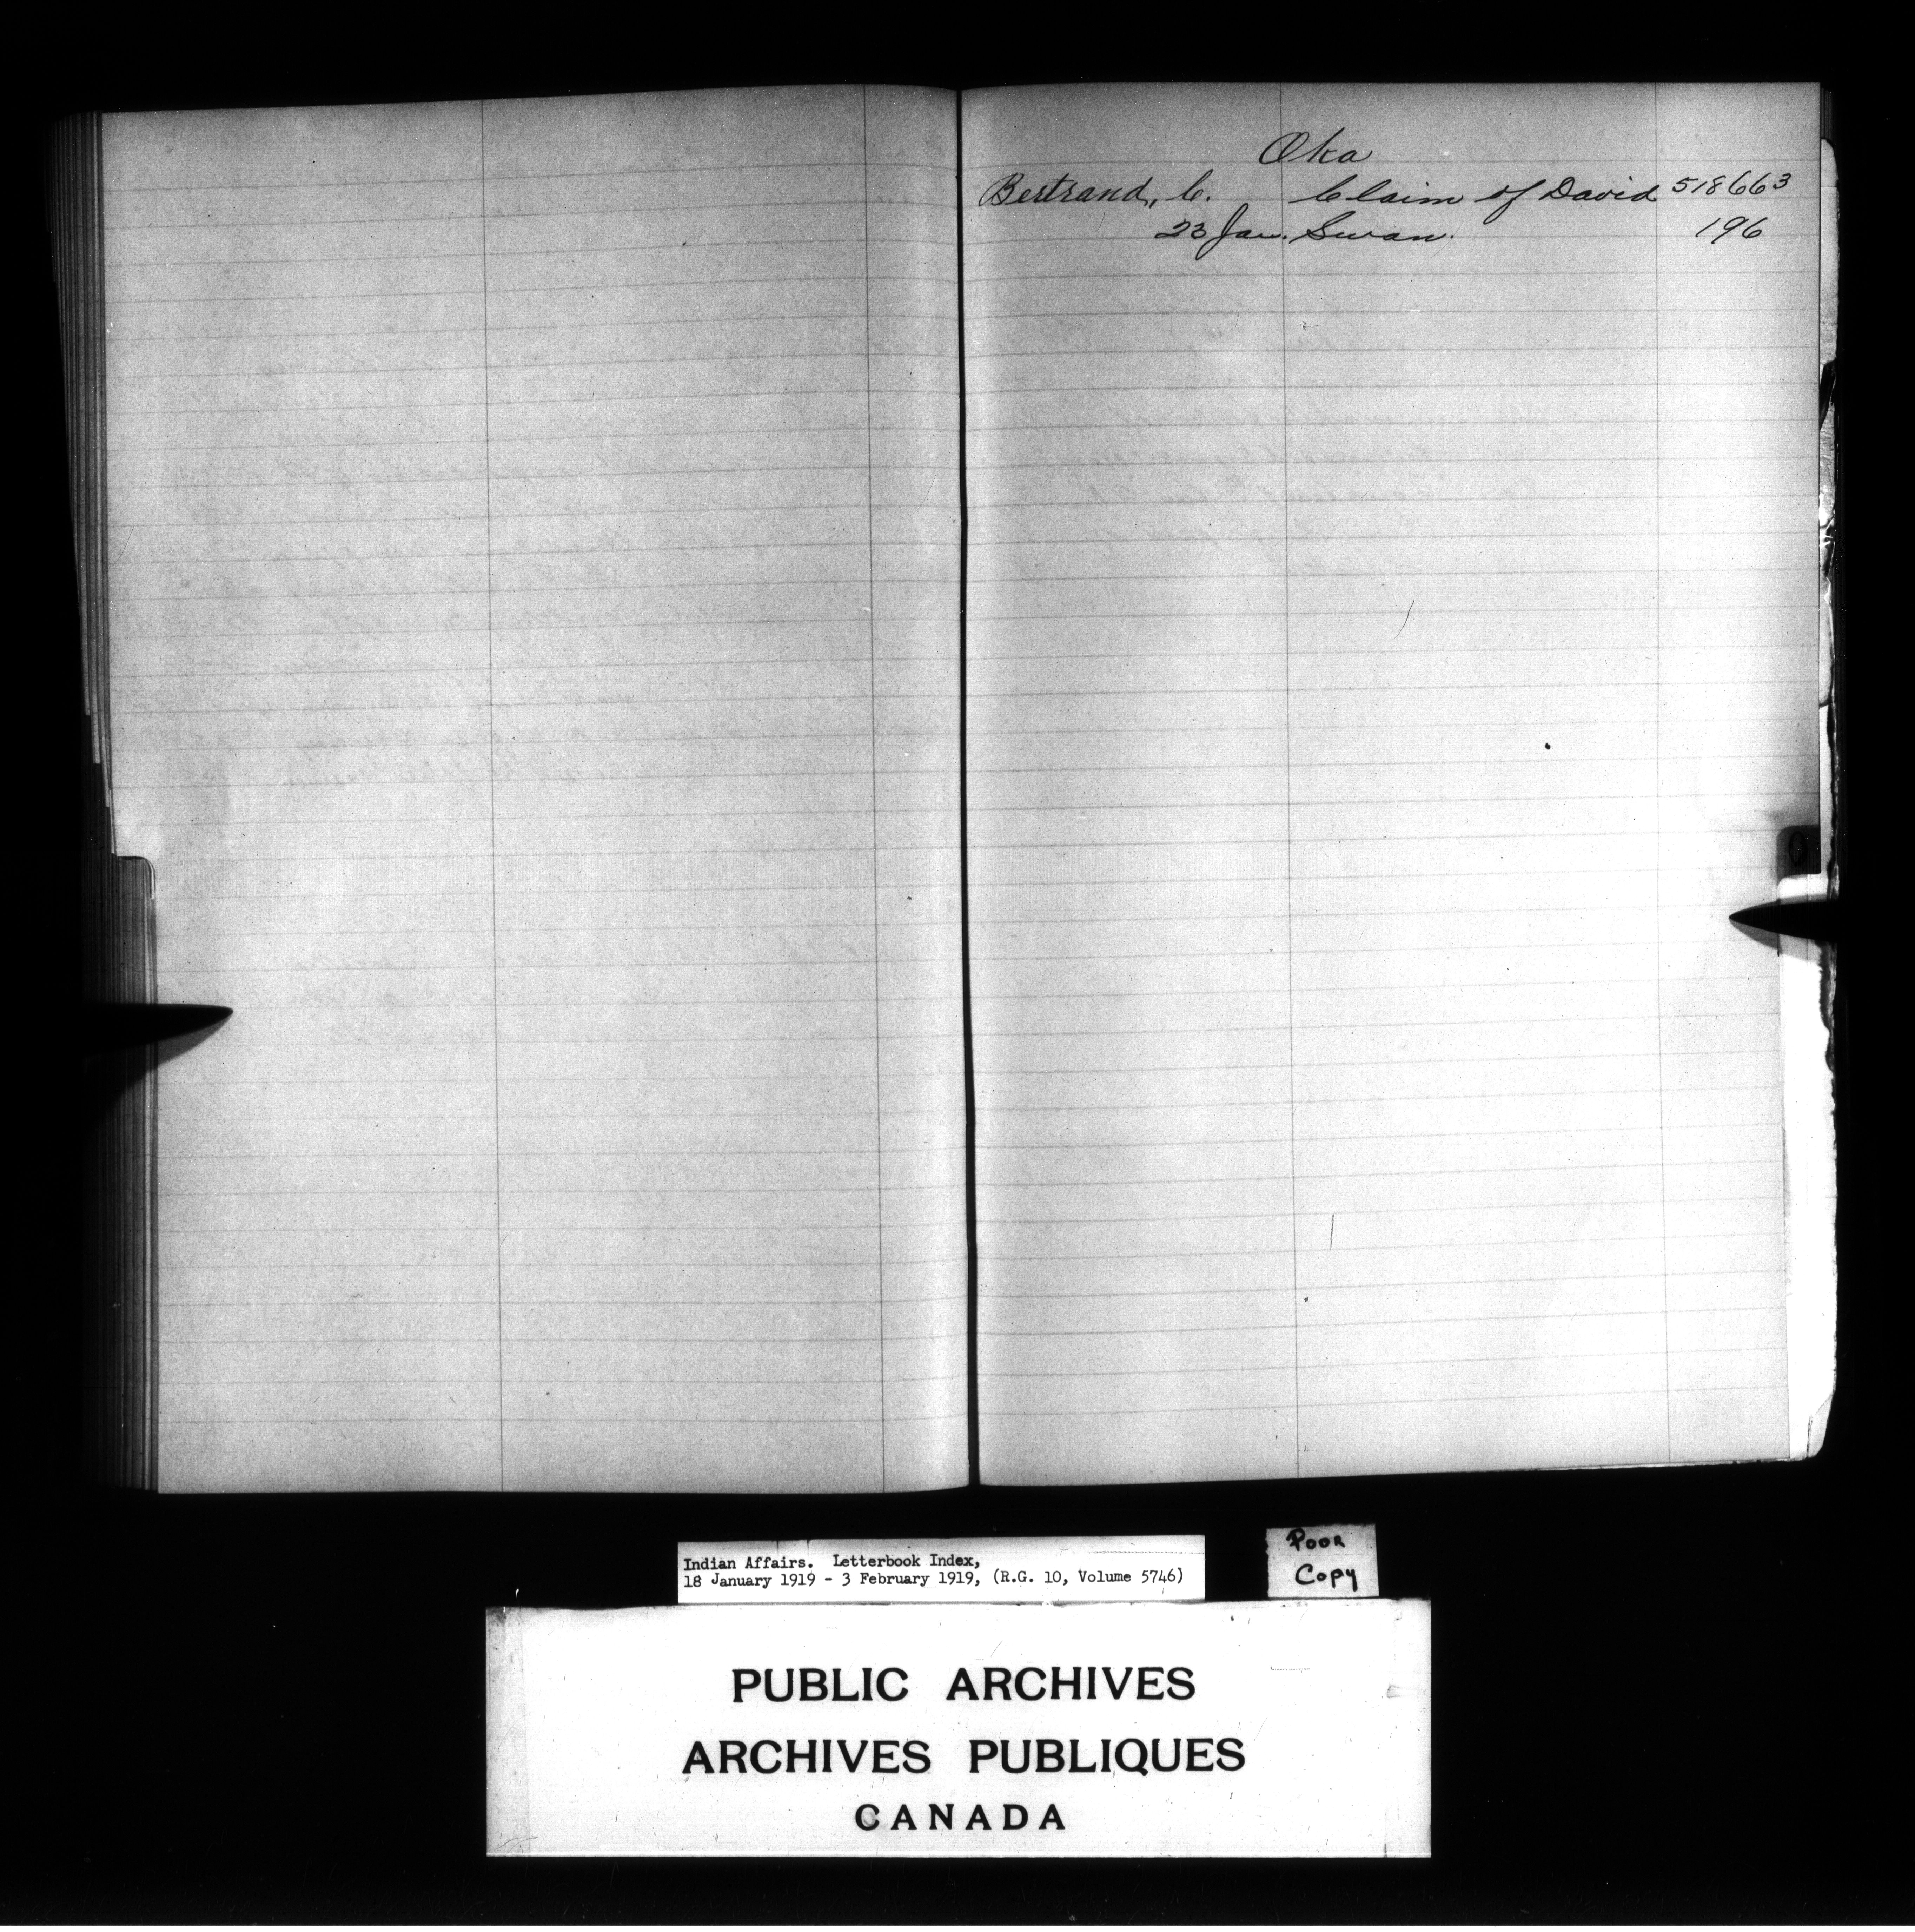 Oka
Bertrand, C. Claim of David 518663
23 Jan. Swan. 196
O
Indian Affairs. Letterbook Index,
18 January 1919 - 3 February 1919, (R.G. 10, Volume 5746)
Poor
Copy
PUBLIC ARCHIVES
ARCHIVES PUBLIQUES
CANADA